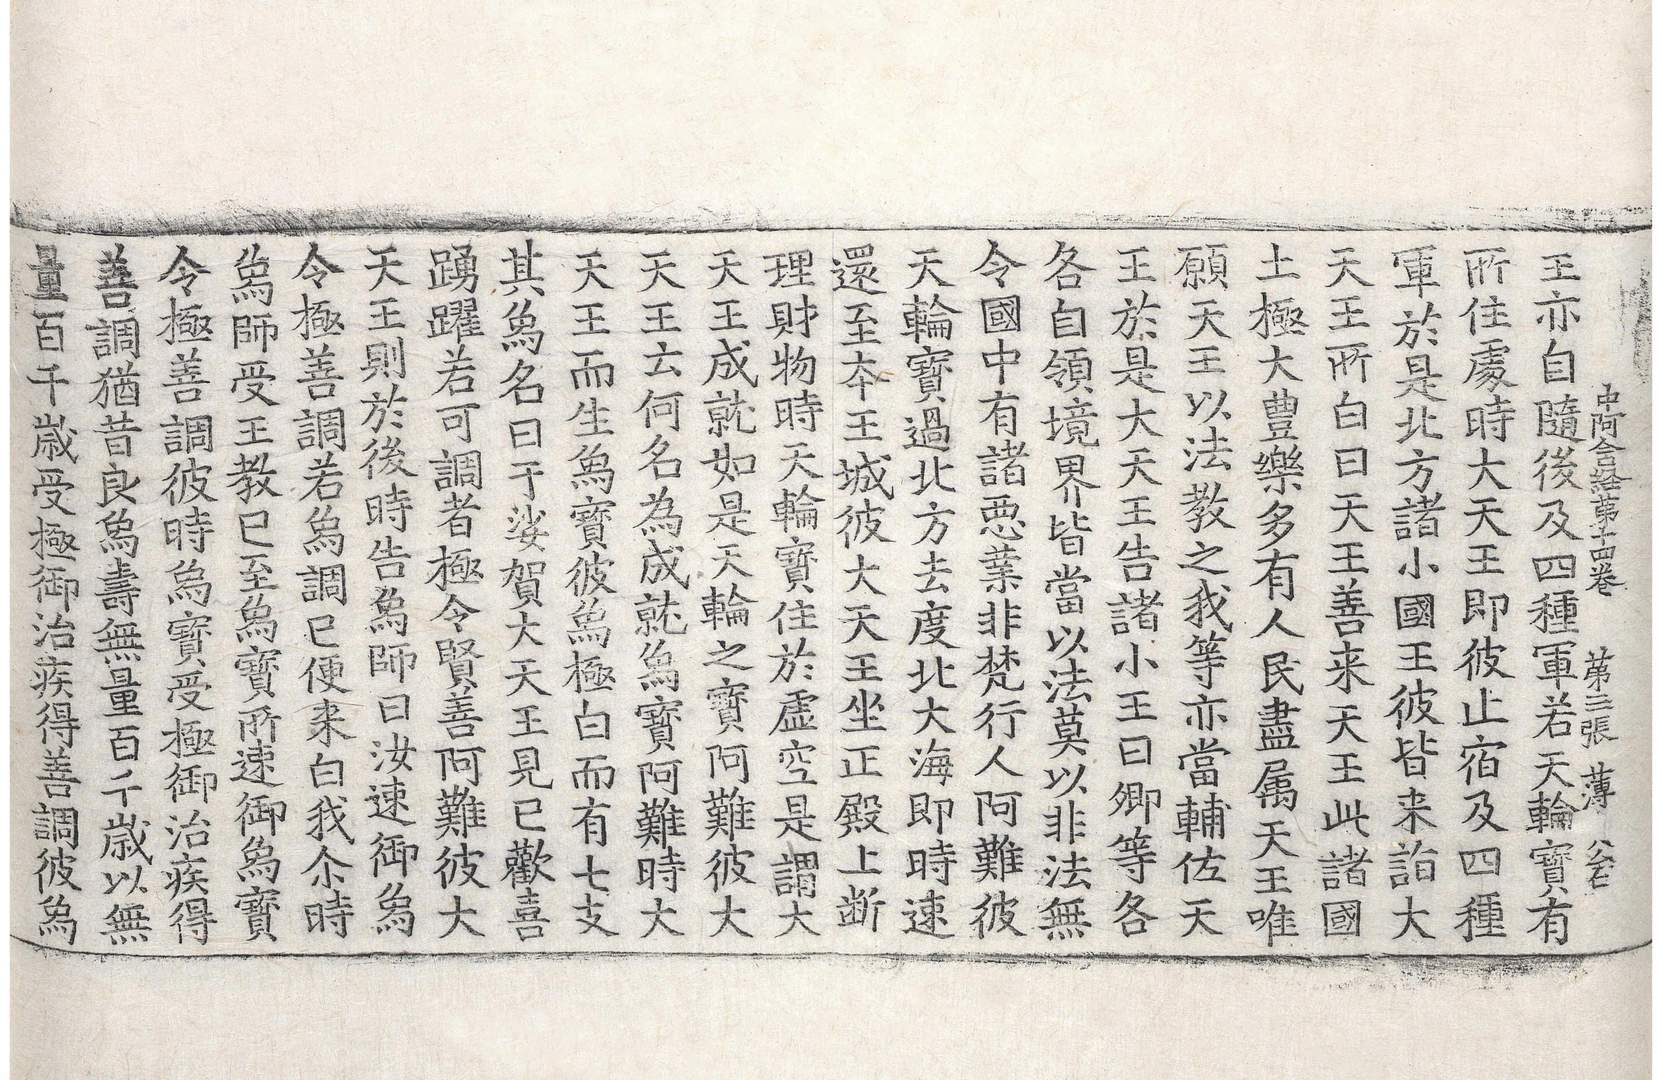 中阿含経第十四卷 第三張 薄
王亦自隨後及四種軍若天輪寶有
所住處時大天王即彼止宿及四種
軍於是北方諸小國王彼皆来詣大
天王所白曰天王善来天王此諸國
土極大豊樂多有人民盡属天王唯
願天王以法教之我等亦當輔佐天
王於是大天王告諸小王曰卿等各
各自領境界皆當以法莫以非法無
令國中有諸悪業非梵行人阿難彼
天輪寶過北方去度北大海即時速
還至夲王城彼大天王坐正殿上断
理財物時天輪寶住於虛空是謂大
天王成就如是天輪之寶阿難彼大
天王云何名為成就爲寶阿難時大
天王而生爲寶彼爲極白而有七支
其爲名曰于娑賀大天王見已歡喜
踴躍若可調者極令賢善阿難彼大
天王則於後時告爲師曰汝速御爲
令極善調若爲調已便来白我尒時
爲師受王教已至爲寶所速御爲寶
令極善調彼時爲寶受極御治疾得
善調猶昔良爲壽無量百千歳以無
量百千歳受極御治疾得善調彼爲